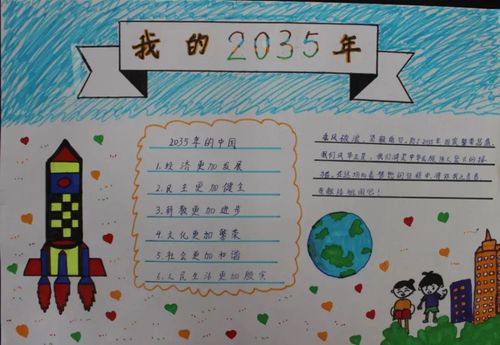 我的2035年
2035年的中国
1.经济更加发展
2.民主更加健全
3.科教更加进步
4.文化更加繁荣
5.社会更加和谐
6.人民生活更加殷实
乘风破浪,
我们风华正茂,我们将是中华民族伟大复兴的接